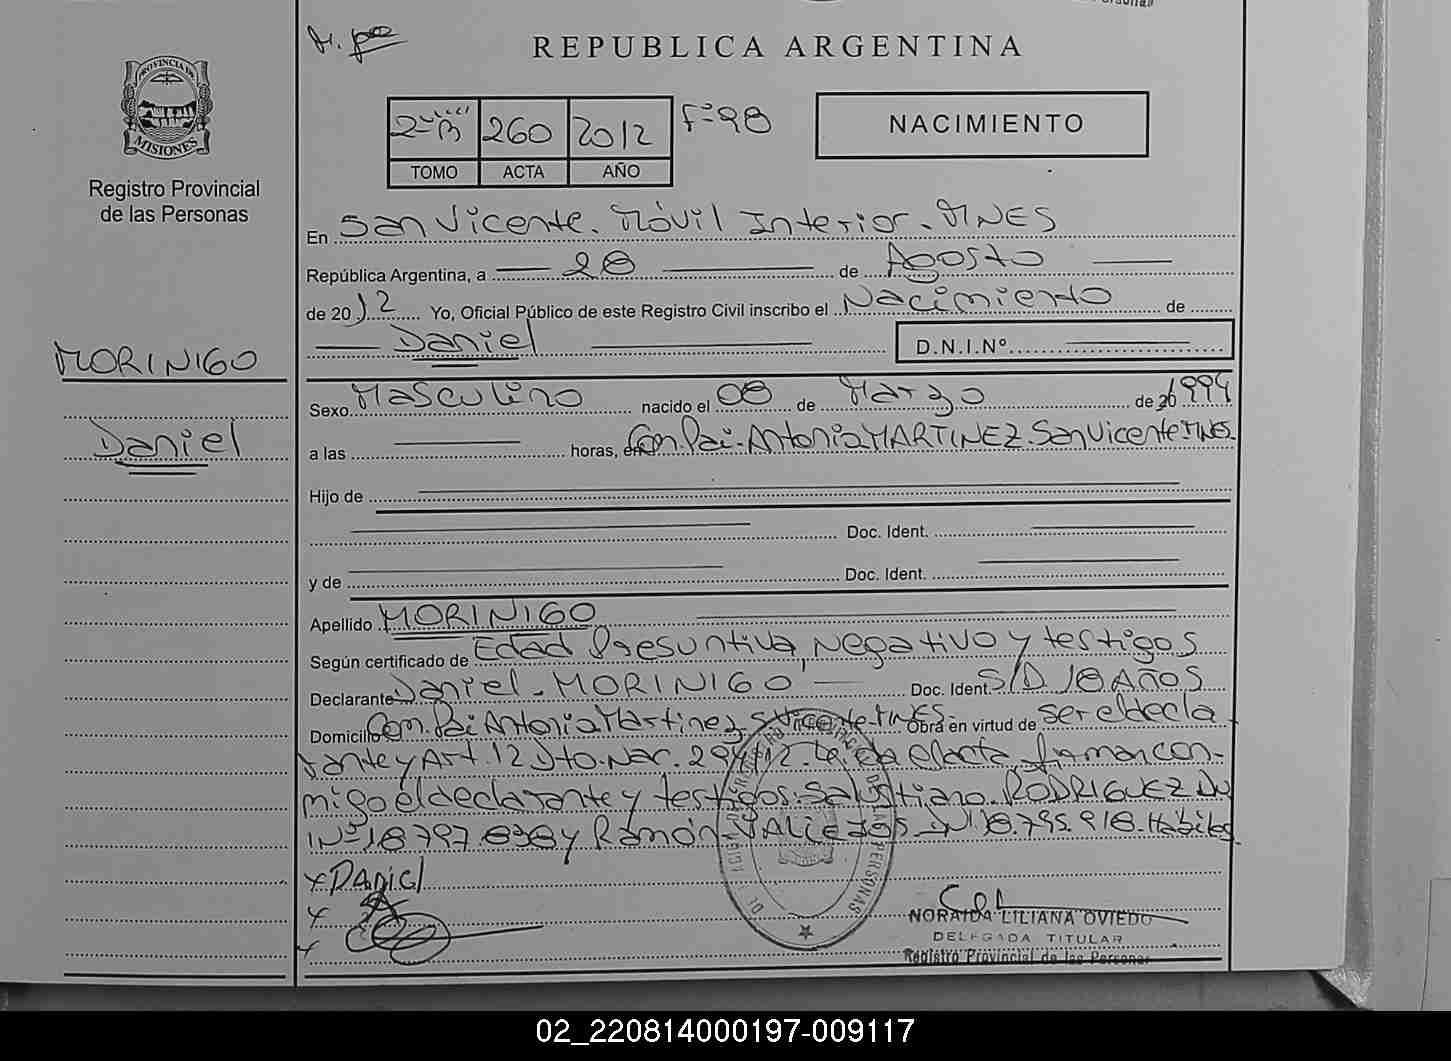 REPUBLICA ARGENTINA
PROVINCIA DE
MISIONES
Registro Provincial
de las Personas
2º B 260 2012 Fº98
TOMO ACTA AÑO
NACIMIENTO
En San Vicente. Móvil Interior. MNES
República Argentina, a 28 de Agosto
de 2012 Yo, Oficial Público de este Registro Civil inscribo el Nacimiento de
Daniel D.N.I.Nº
MORINIGO
Daniel
Sexo Masculino nacido el 08 de Marzo de 1994
a las horas, en Com. Pai. Antonia MARTINEZ San Vicente MNES.
Hijo de
Doc. Ident.
y de Doc. Ident.
Apellido MORINIGO
Según certificado de Edad Presuntiva, Negativo y testigos
Declarante Daniel. MORINIGO Doc. Ident. S/D 18 AÑOS
Domicilio Com. Pai Antonia Martinez S. Vicente-MNES. Obra en virtud de ser el decla
rante y Art. 12 Dto. Nac. 294/12. Leída el acta, firman con-
migo el declarante y testigos: Salustiano RODRIGUEZ DN
INº 18.797.838 y Ramón VALIEJOS 18.795.918. Hábiles
x DANIEL
x
x
NORAIDA LILIANA OVIEDO
DELEGADA TITULAR
Registro Provincial de las Personas
02_220814000197-009117